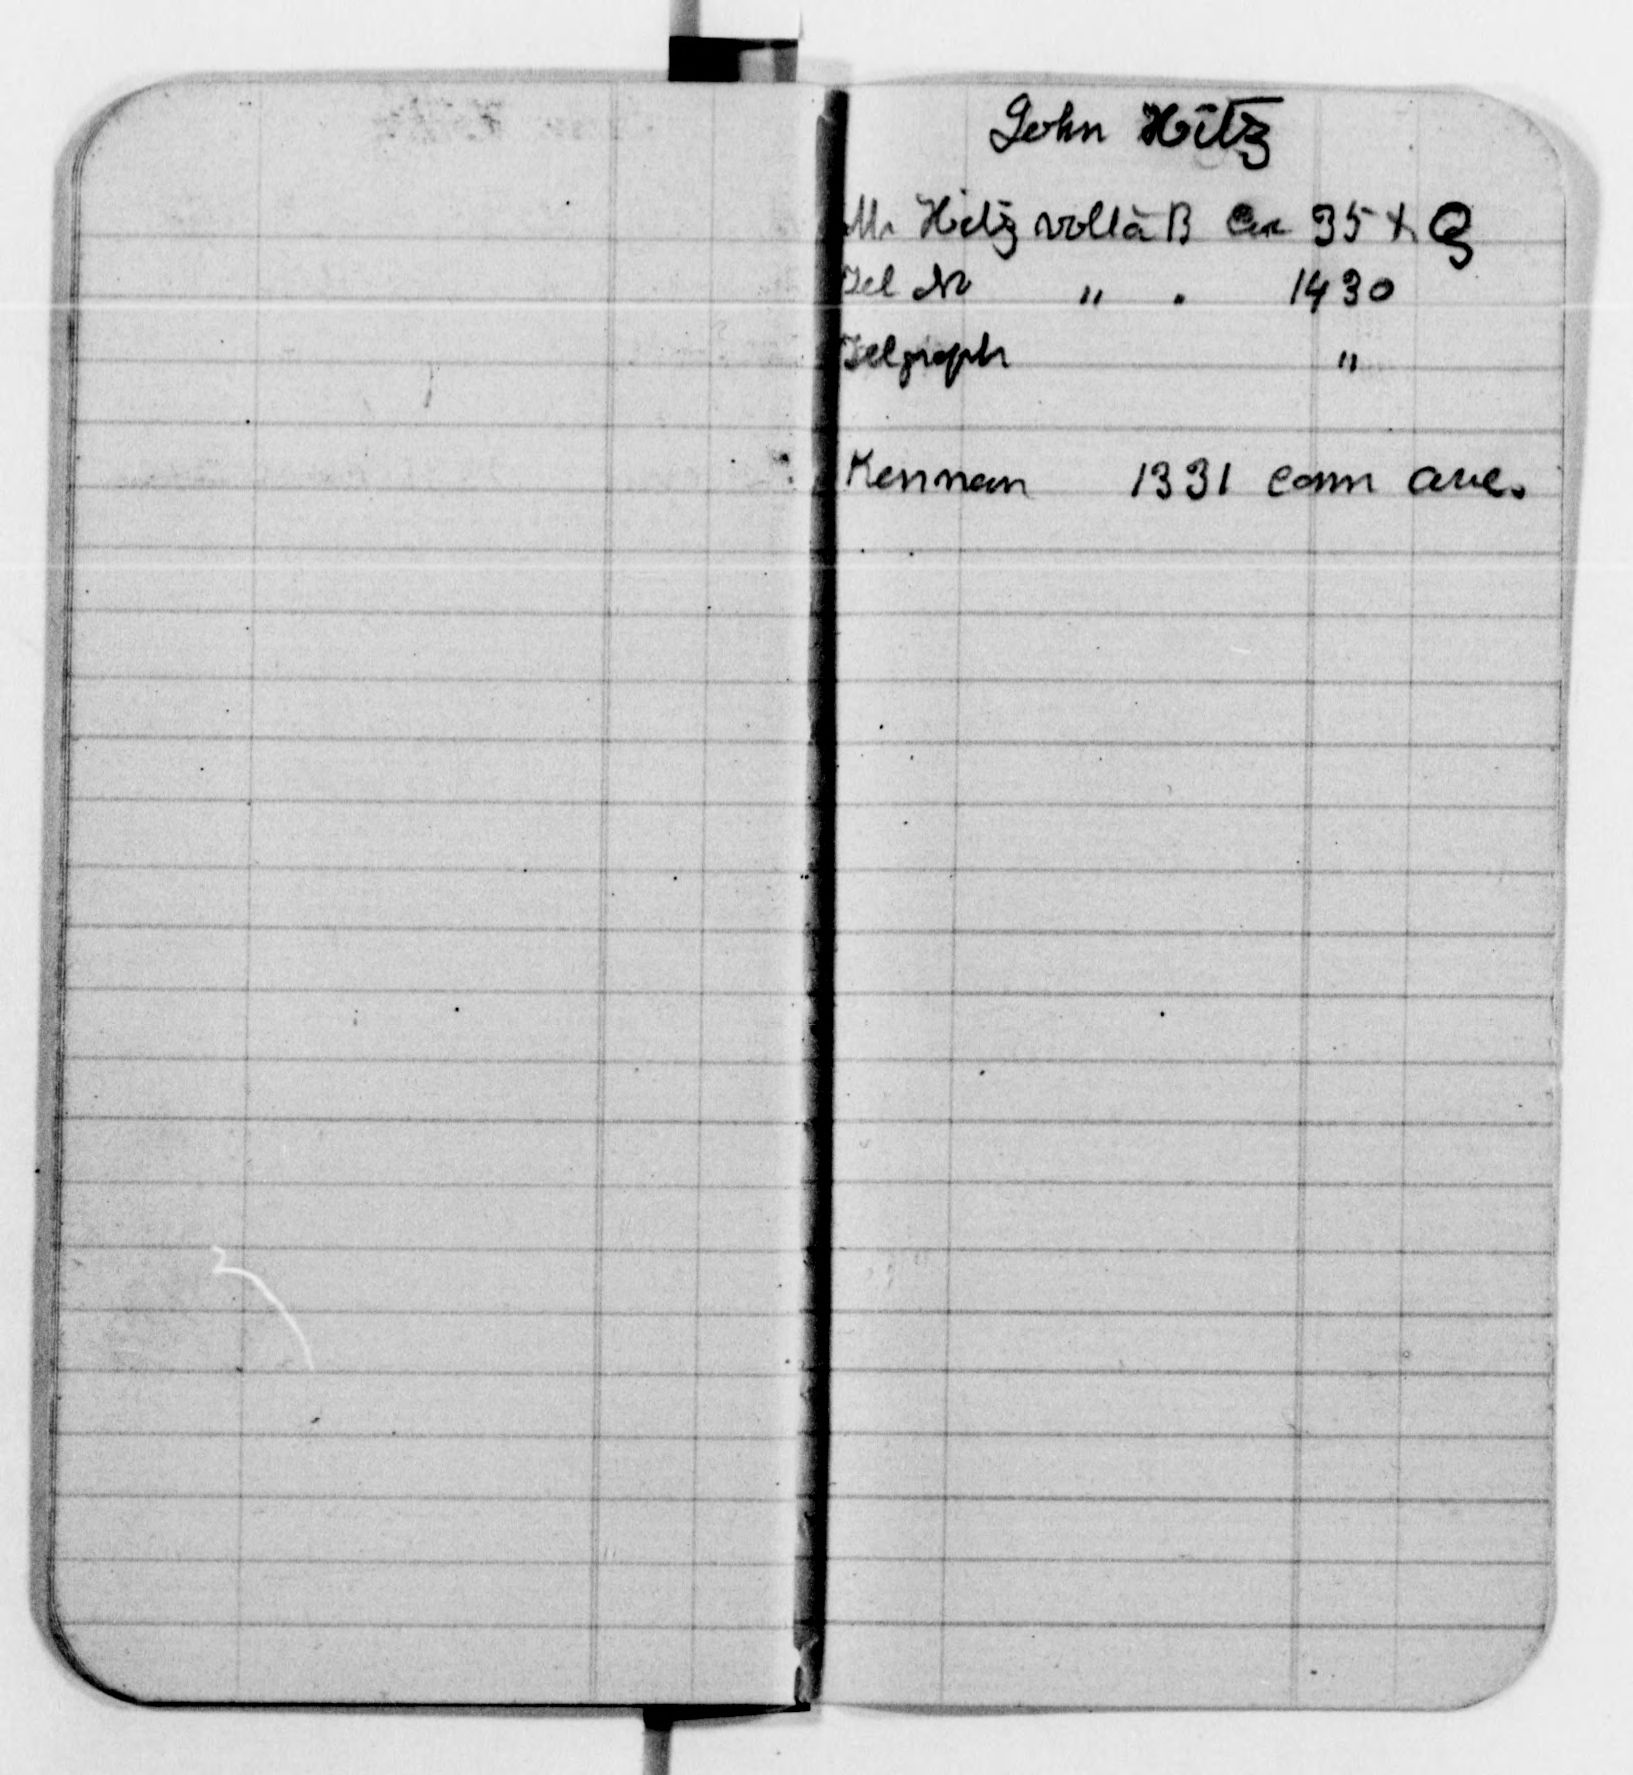 John Hitz
Mr Hitz Volta B Cor 35 & Q
Tel No " " 1430
Telgraph "
Kennan 1331 Conn Ave.